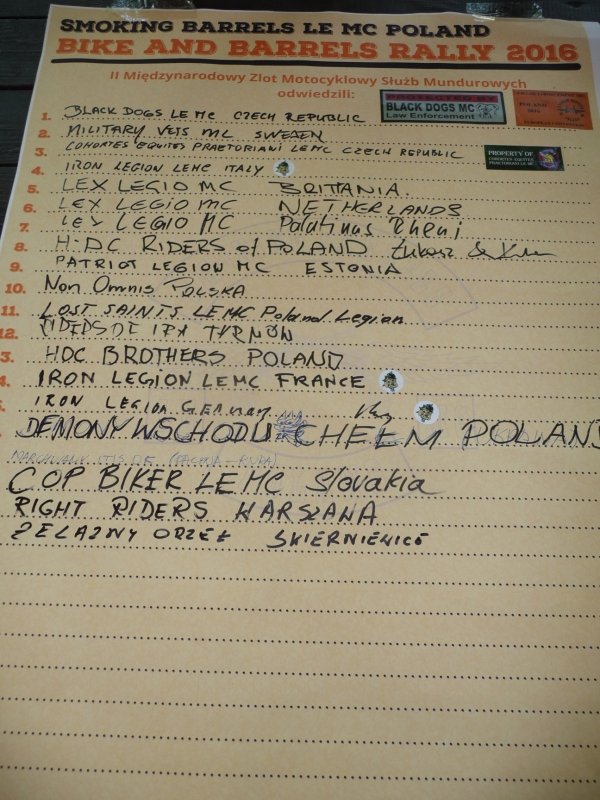 SMOKING BARRELS LE MC POLAND
BIKE AND BARRELS RALLY 2016
II Międzynarodowy Zlot Motocyklowy Służb Mundurowych
odwiedzili:
PROTECTED BY
BLACK DOGS MC
Law Enforcement
POLAND
1. BLACK DOGS LE MC CZECH REPUBLIC
2. MILITARY VETS MC SWEDEN
3. COHORTES EQUITES PRAETORIANI LE MC CZECH REPUBLIC
PROPERTY OF
COHORTES EQUITES
PRAETORIANI LE MC
4. IRON LEGION LEMC ITALY
5. LEX LEGIO MC BRITTANIA.
6. LEX LEGIO MC NETHERLANDS
7. LEX LEGIO MC Palatinus Rheni
8. H-DC RIDERS of POLAND Łukasz &
9. PATRIOT LEGION MC ESTONIA
10. Non Omnis POLSKA
11. LOST SAINTS LE MC Poland Legion
12. RIDERS OF IPA
3. HDC BROTHERS POLAND
4. IRON LEGION LEMC FRANCE
IRON LEGION GERMANY
DEMONY WSCHODU CHEŁM POLAND
COP BIKER LE MC Slovakia
RIGHT RIDERS WARSZAWA
ŻELAZNY ORZEŁ SKIERNIEWICE